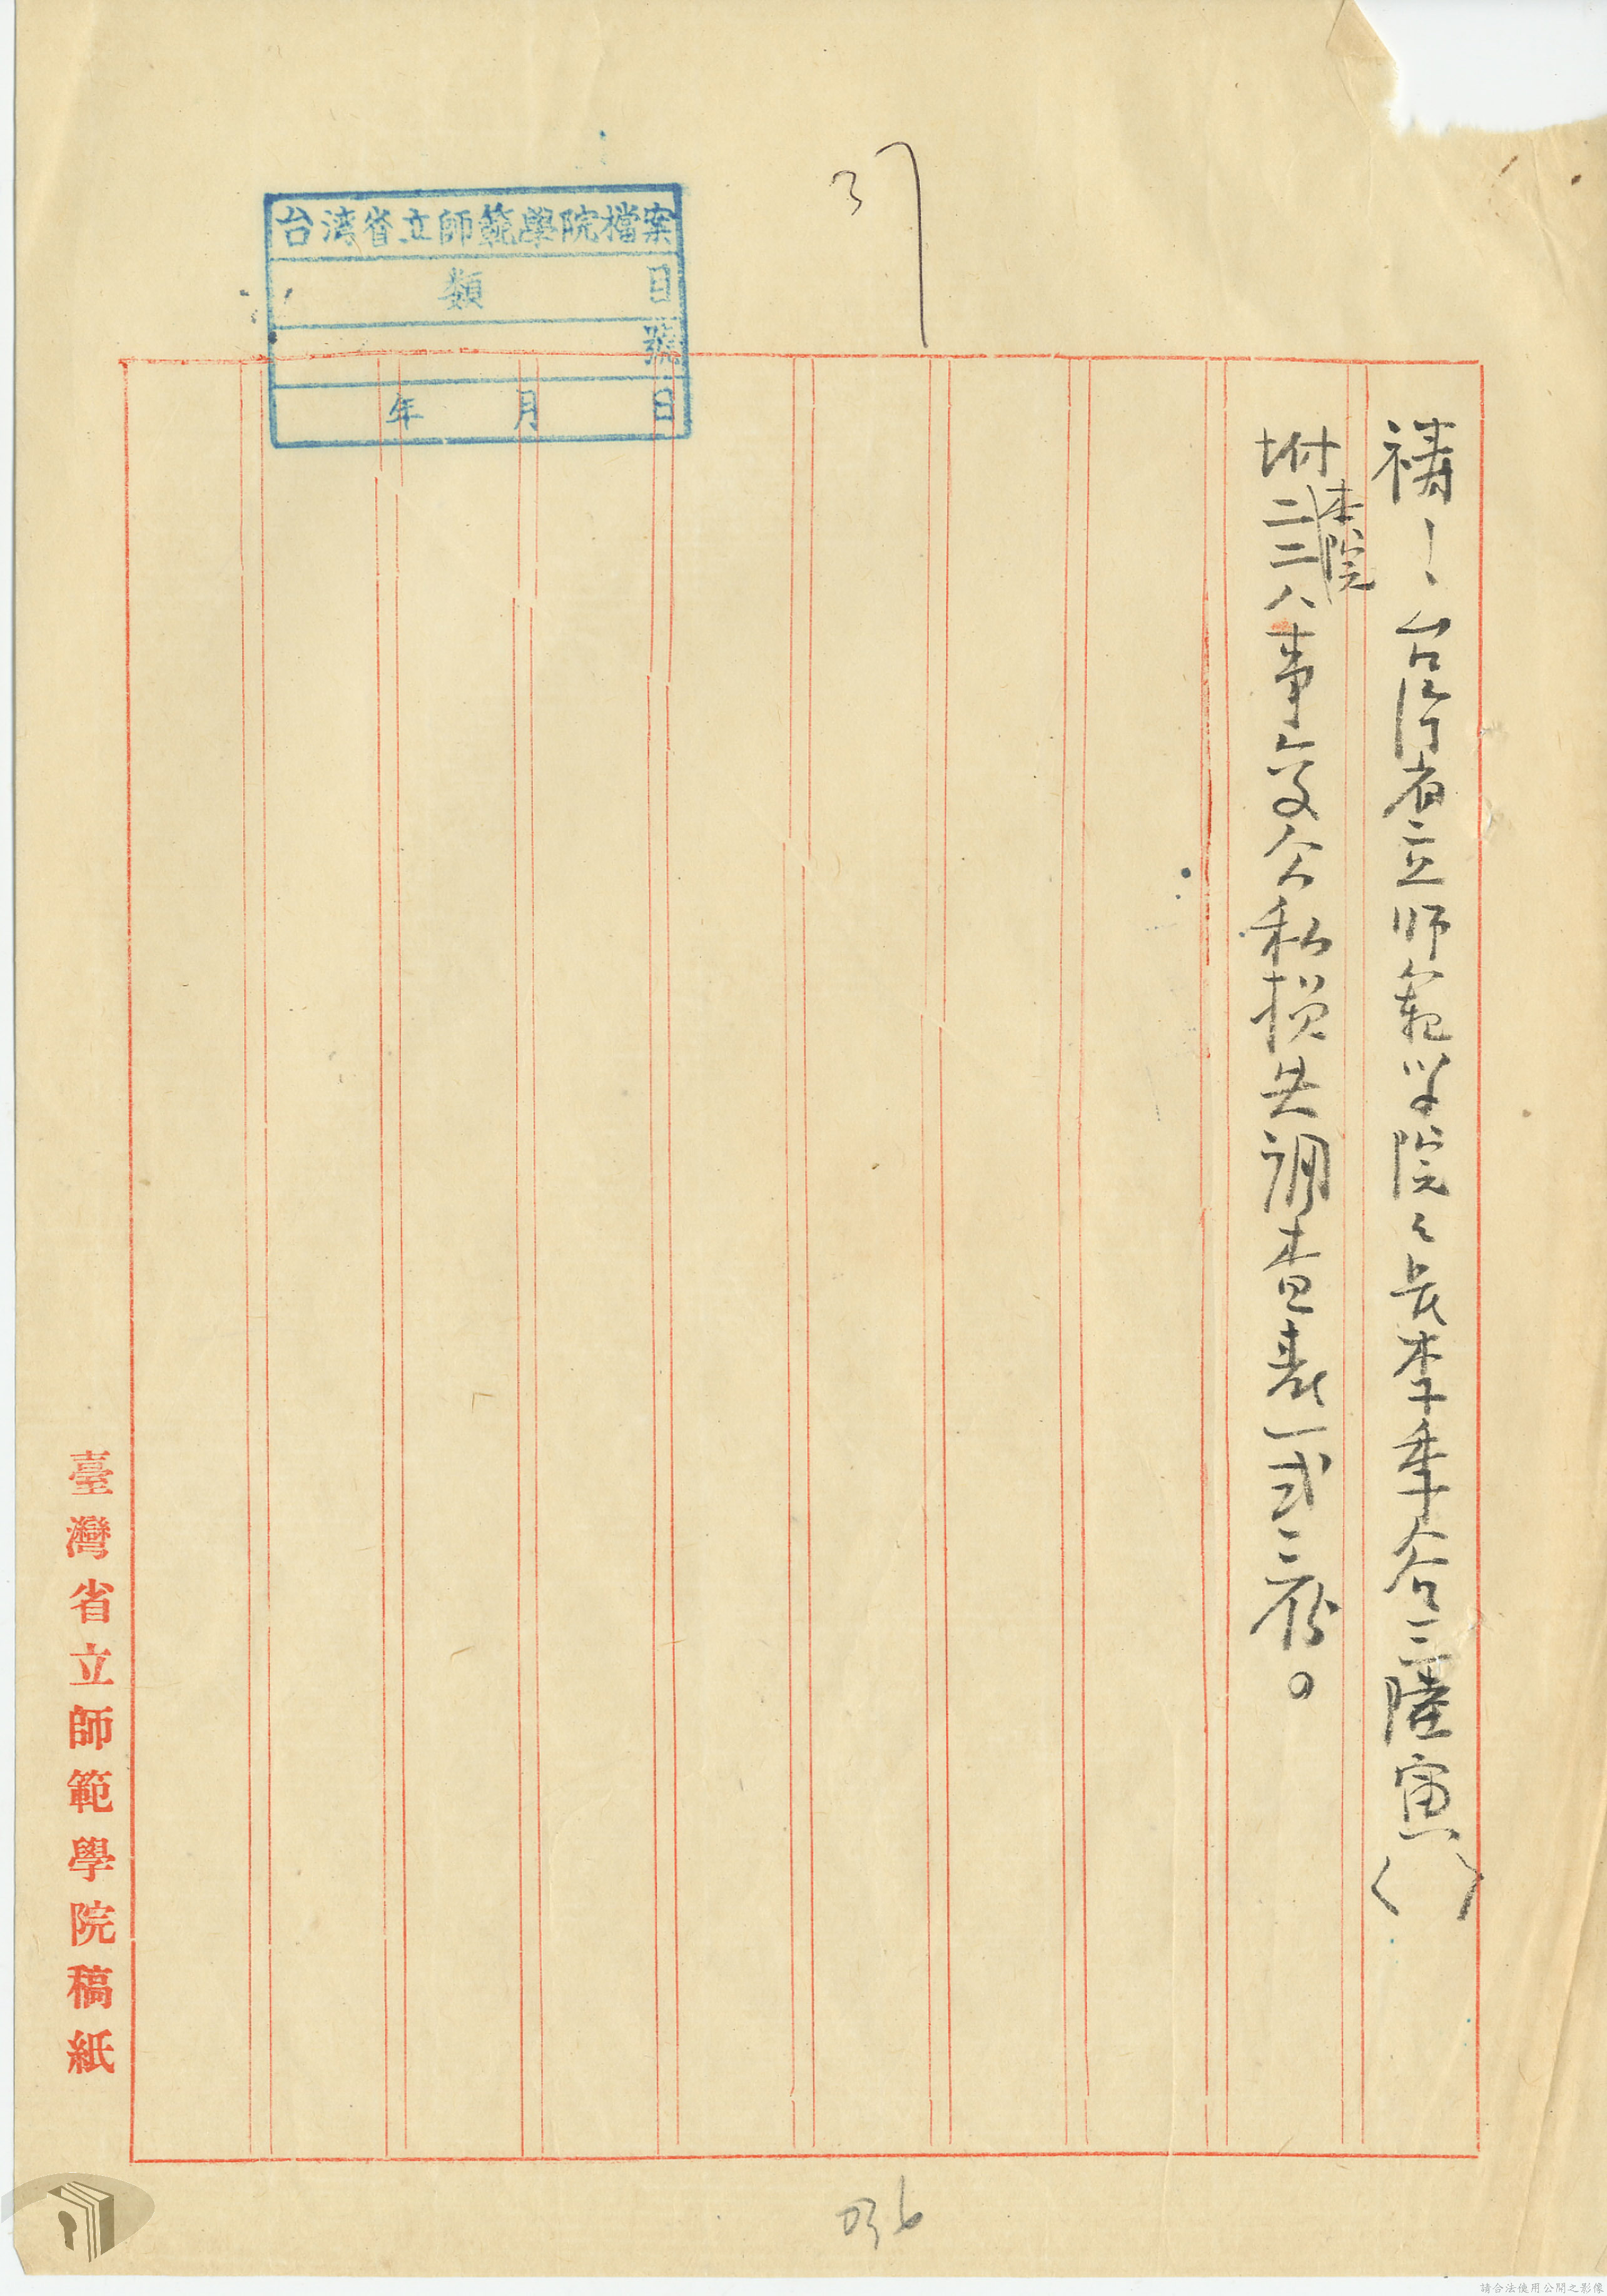 37
台湾省立師範學院檔案
類 目
號
年 月 日
禱！台湾省立师範学院々長李季谷三陸寅( )
本院
坿二二八事变公私損失調查表一式三份。
臺灣省立師範學院稿紙
036
請合法使用公開之影像